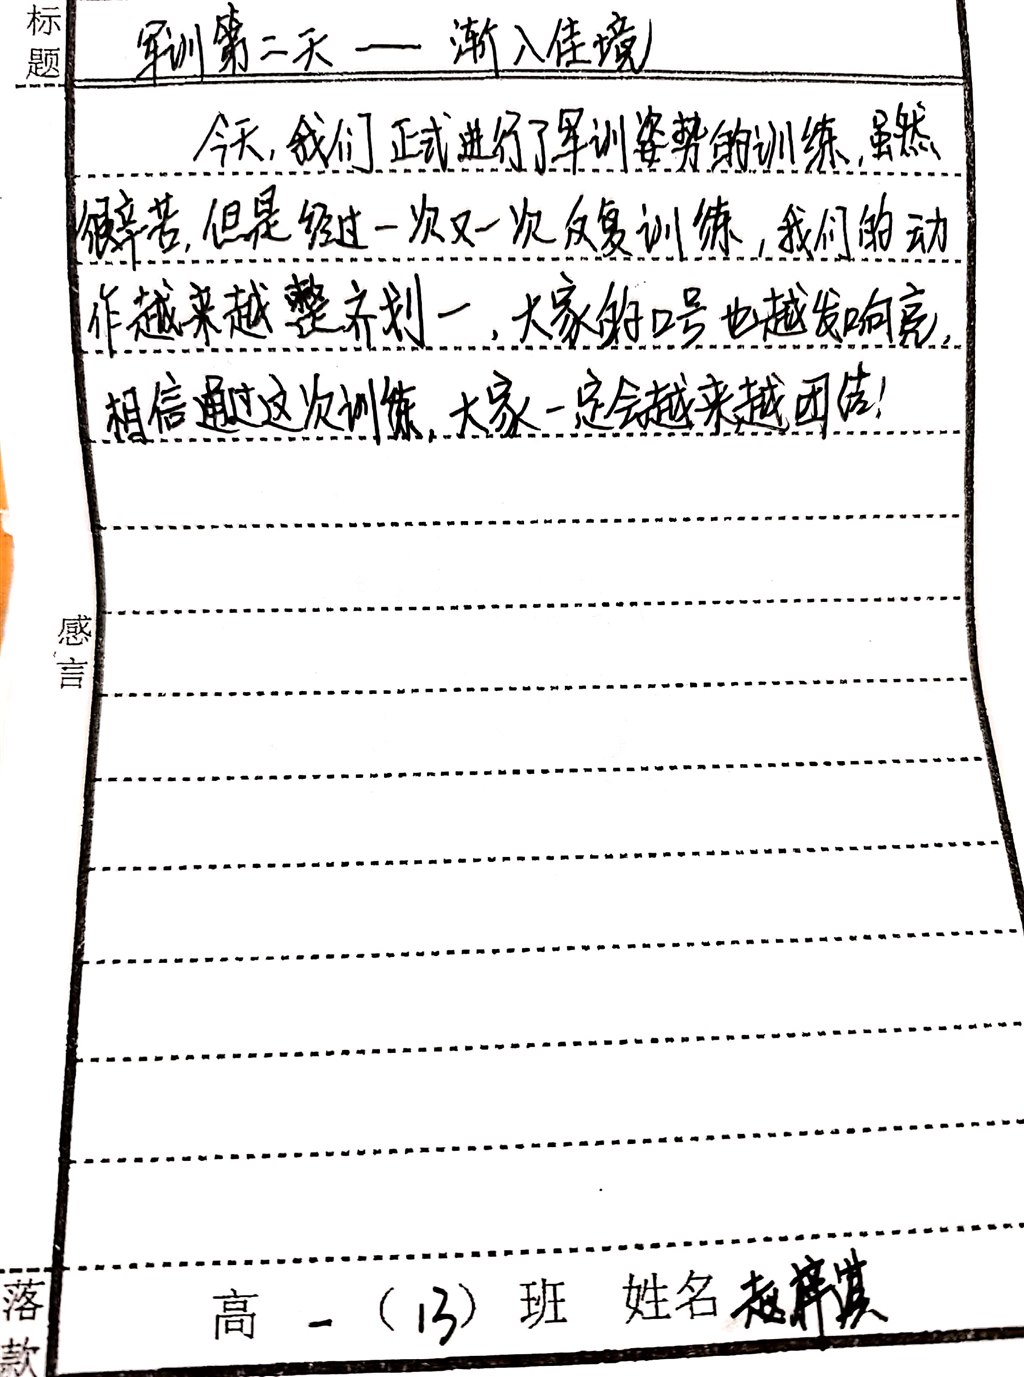 标题
军训第二天——渐入佳境
今天,我们正式进行了军训姿势的训练,虽然
很辛苦,但是经过一次又一次反复训练,我们的动
作越来越整齐划一,大家的口号也越发响亮,
相信通过这次训练,大家一定会越来越团结!
感言
落款
高一(13)班 姓名 赵梓淇